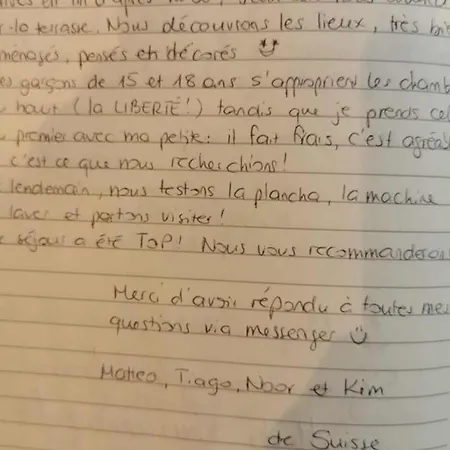 la terrasse. Nous découvrons les lieux, très bien
ménagés, pensés et décorés
es garçons de 15 et 18 ans s'approprient les chamb
haut (la LIBERTÉ!) tandis que je prends cel
premier avec ma petite: il fait frais, c'est agréab
c'est ce que nous recherchions!
lendemain, nous testons la plancha, la machine
laver et partons visiter!
séjour a été TOP! Nous vous recommanderon
Merci d'avoir répondu à toutes mes
questions via messenger
Matteo, Tiago, Noor et Kim
de Suisse